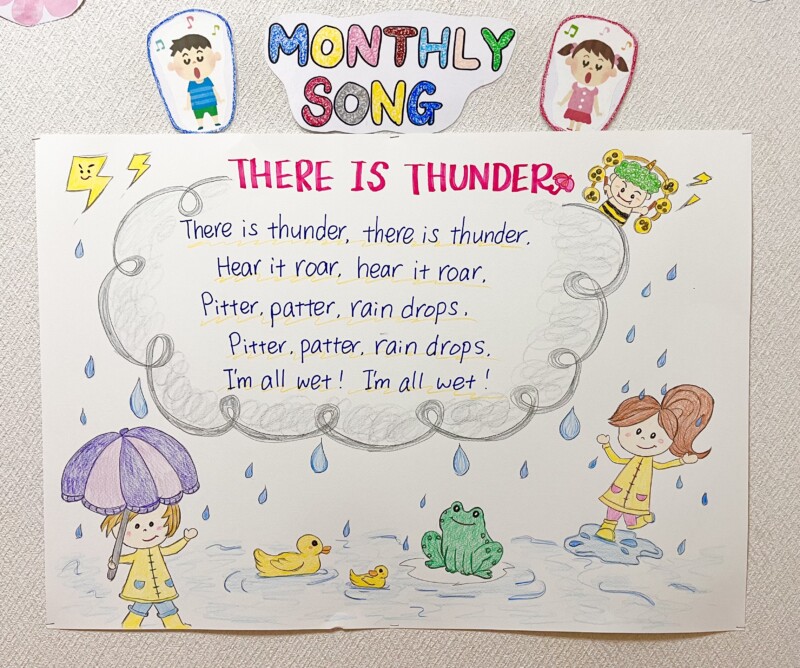 MONTHLY
SONG
THERE IS THUNDER
There is thunder, there is thunder.
Hear it roar, hear it roar.
Pitter, patter, rain drops.
Pitter, patter, rain drops.
I'm all wet! I'm all wet!